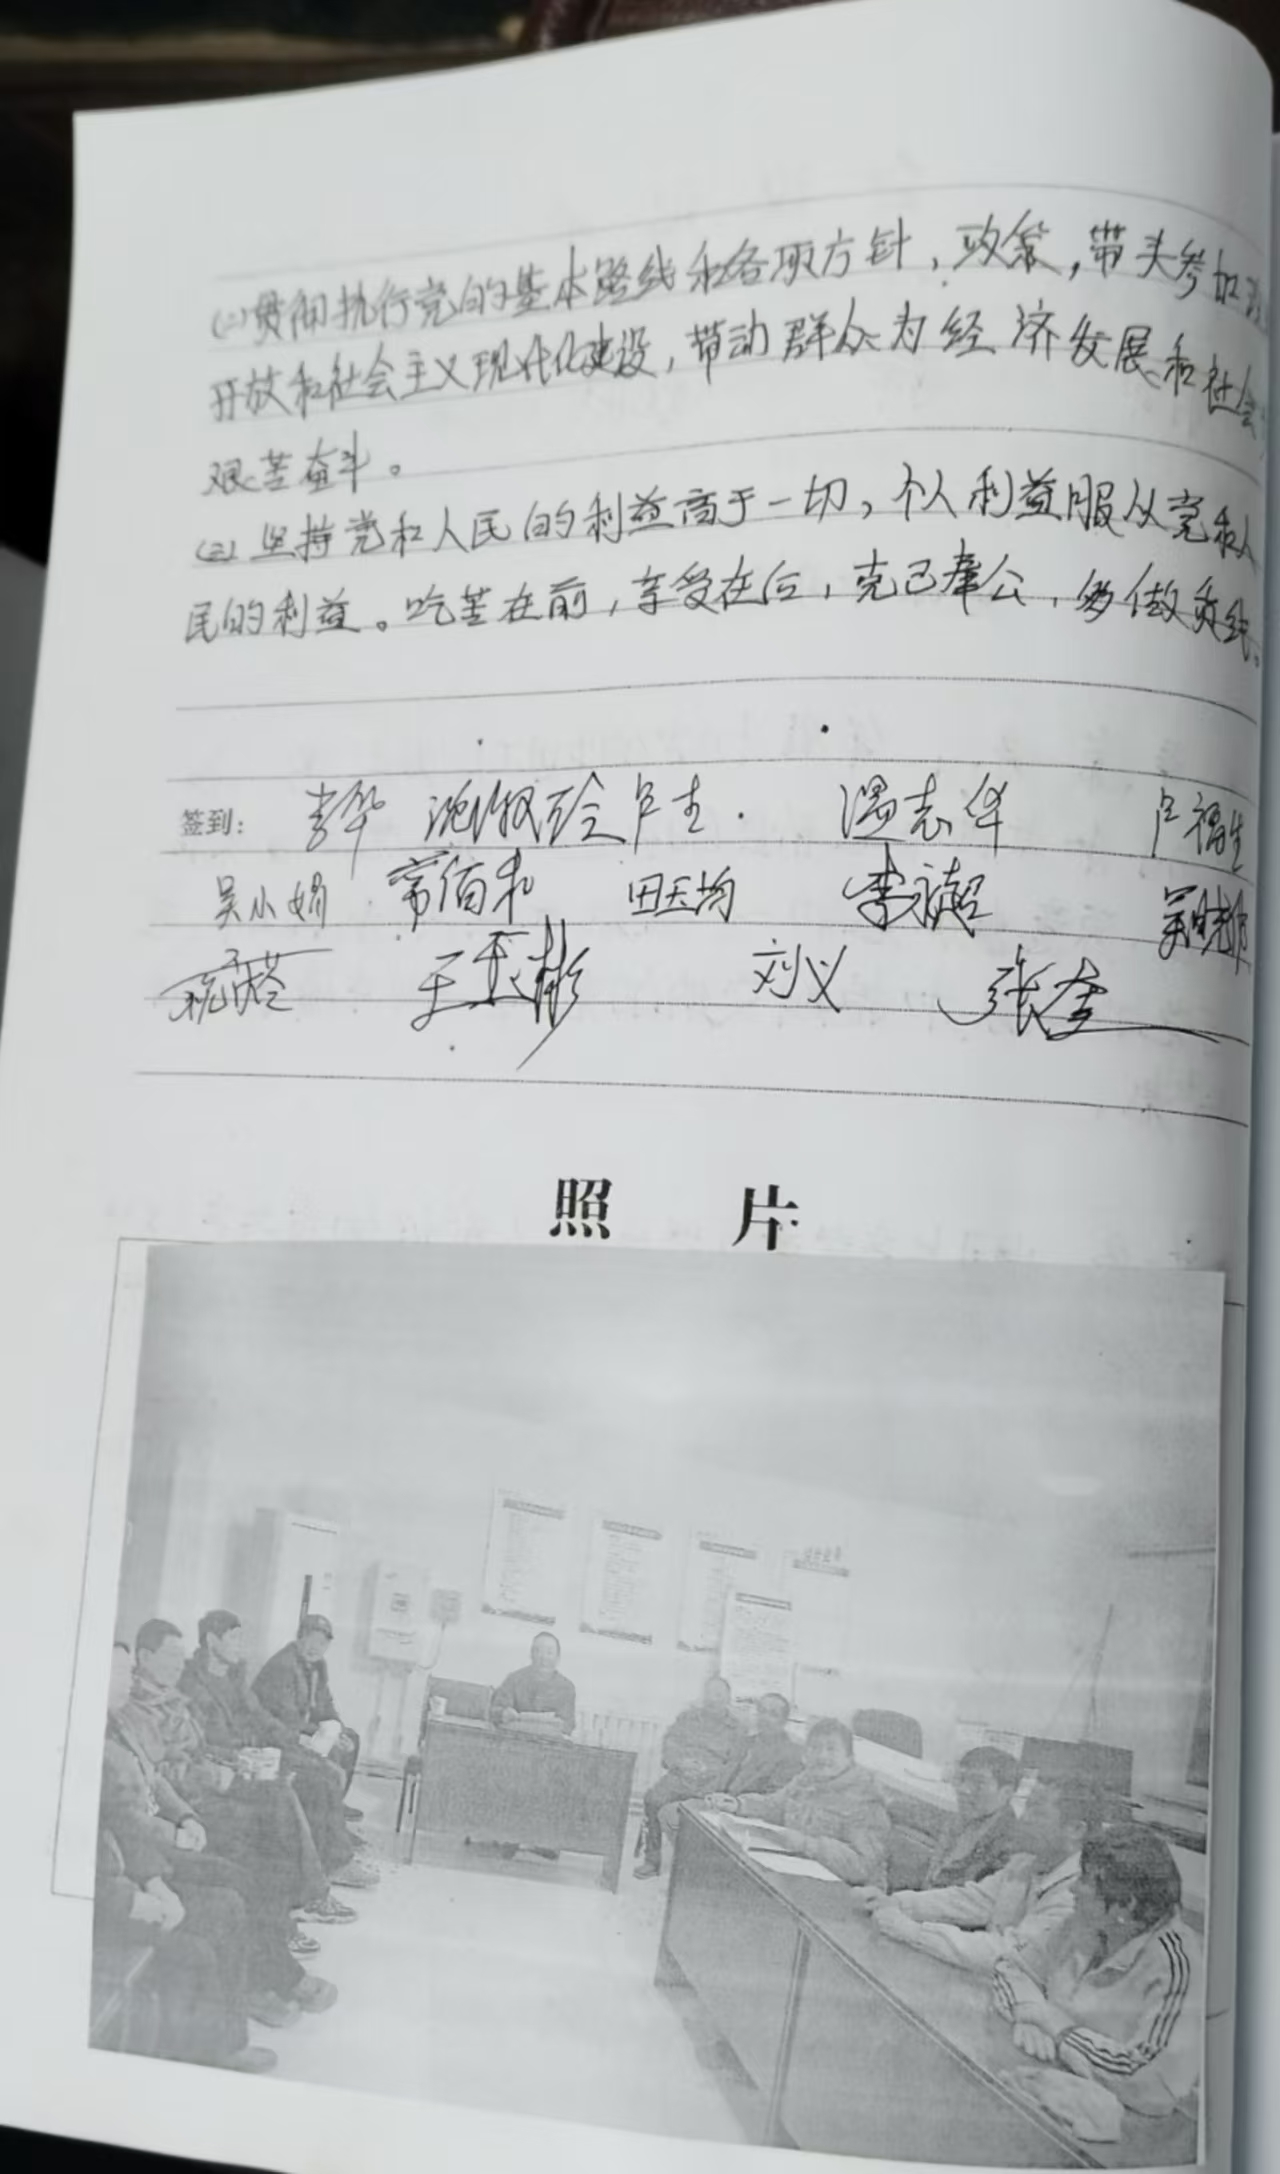 (二)贯彻执行党的基本路线和各项方针,政策,带头参加改
开放和社会主义现代化建设,带动群众为经济发展和社会
艰苦奋斗。
(三)坚持党和人民的利益高于一切,个人利益服从党和人
民的利益。吃苦在前,享受在后,克己奉公,多做贡献。
签到: 李华 卢生. 温志华 卢福生
吴小娟 常佰和 田玉均 李永超
王玉彬 刘义 张奎
照 片